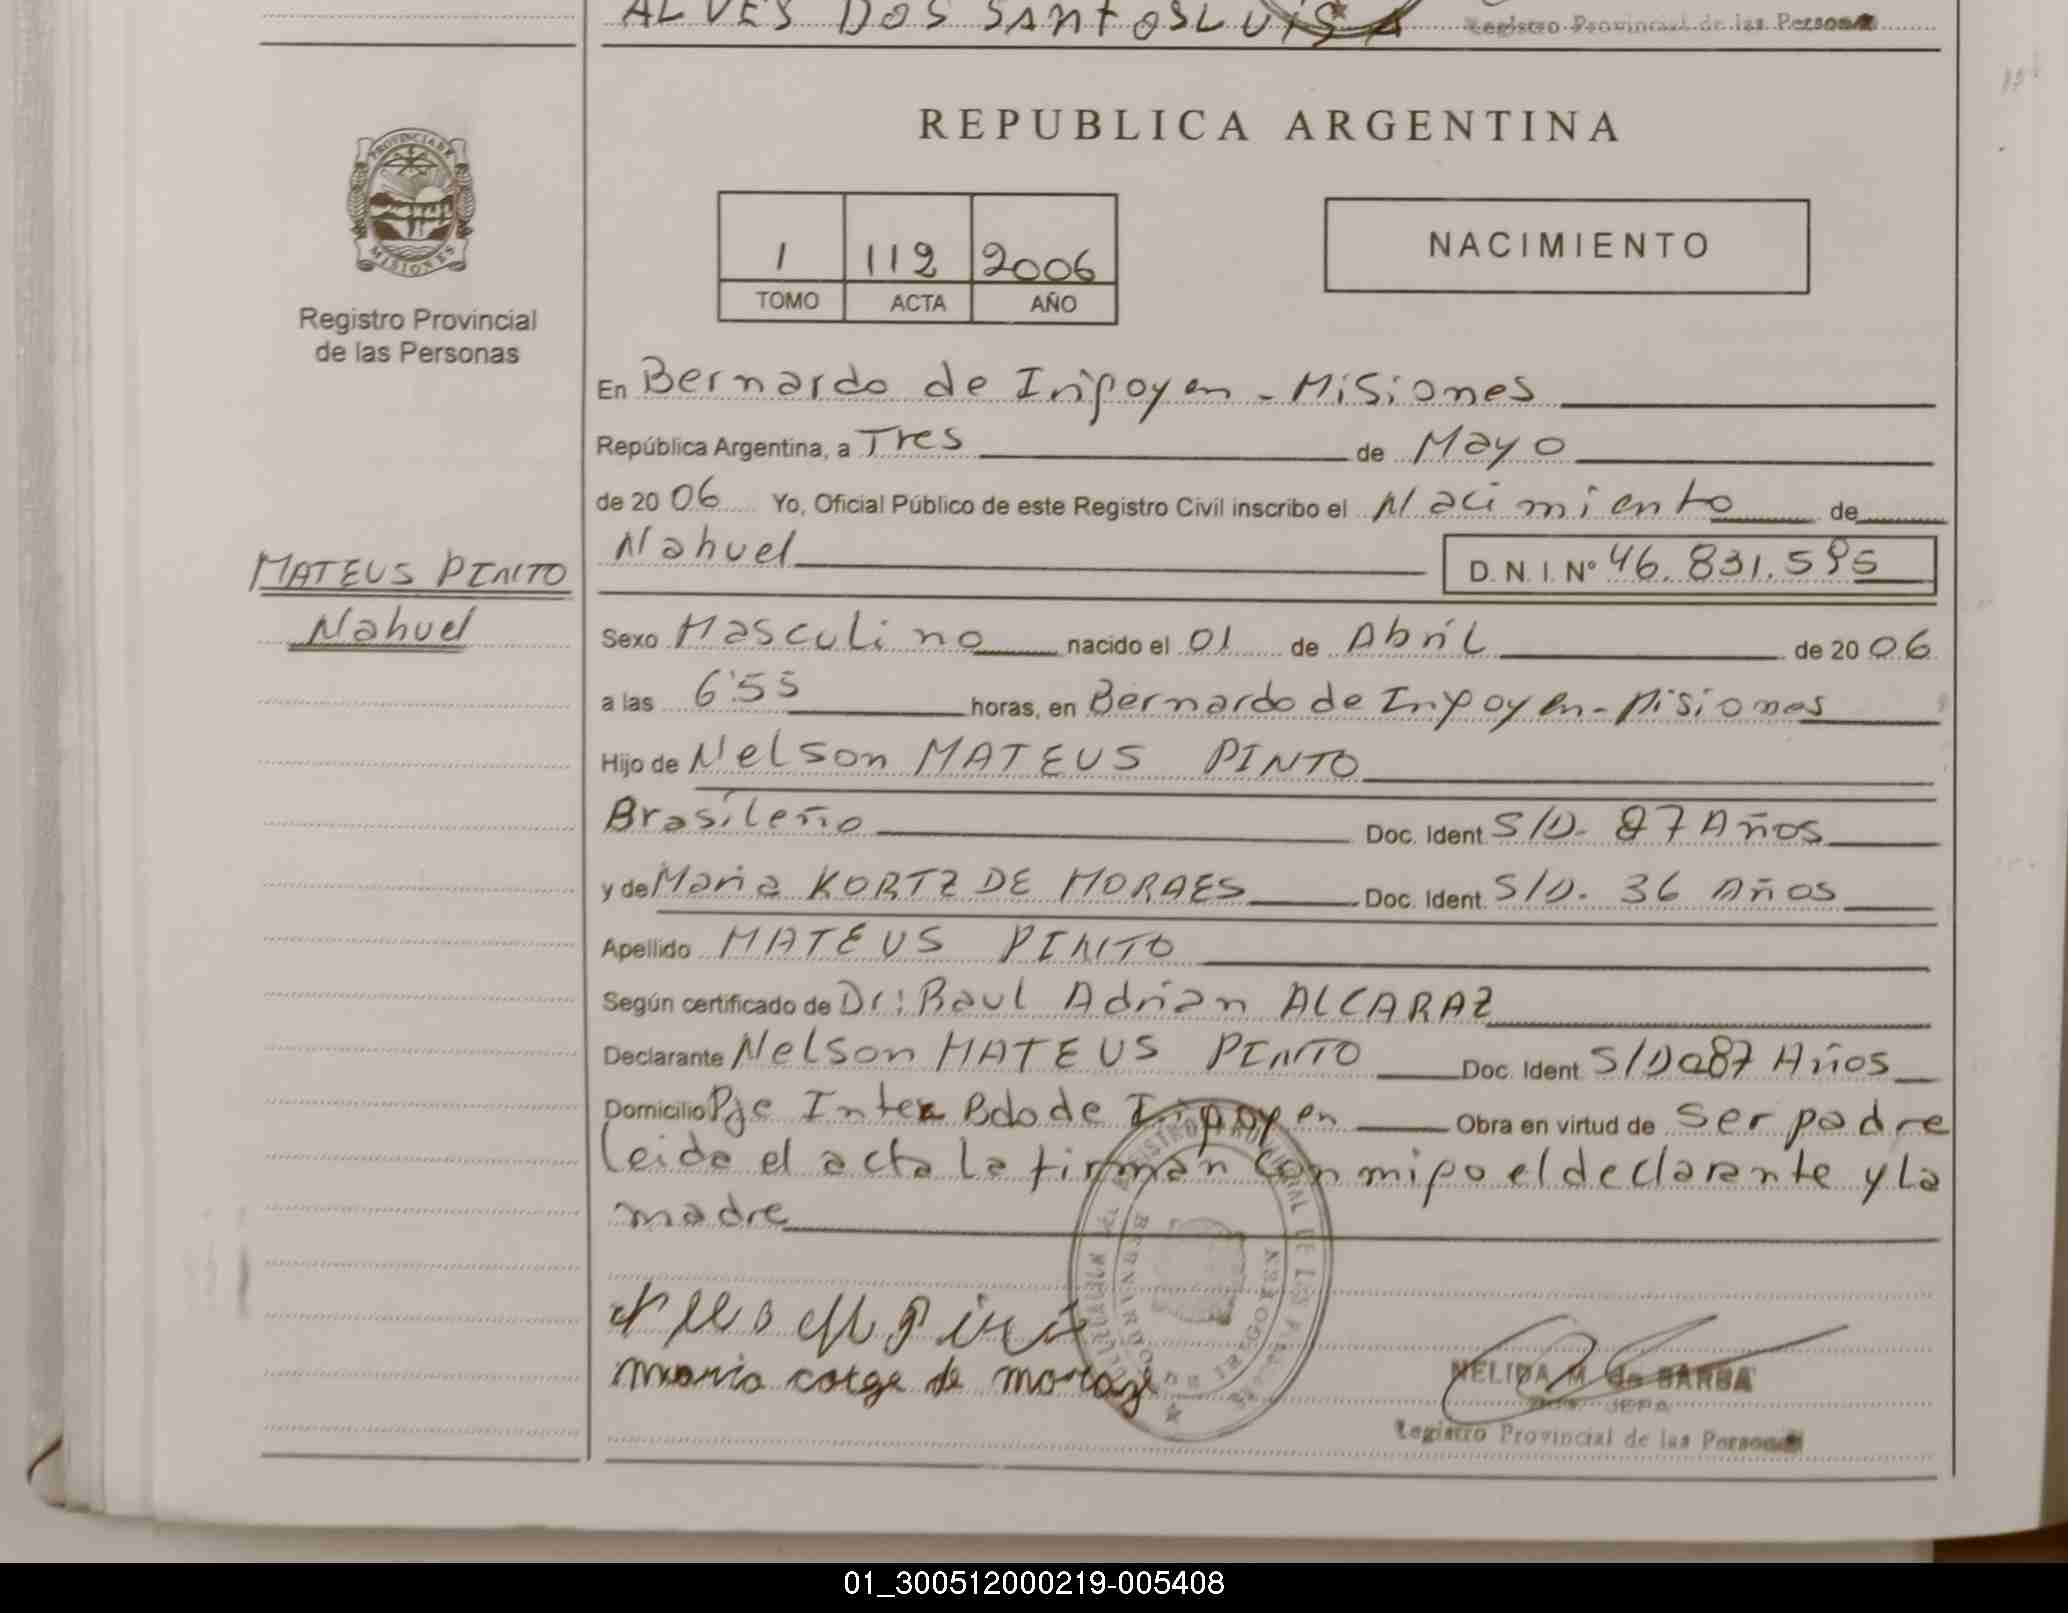 ALVES DOS SANTOS LUISA
Registro Provincial de las Personas
PROVINCIA DE
MISIONES
Registro Provincial
de las Personas
REPUBLICA ARGENTINA
1 112 2006
TOMO ACTA AÑO
NACIMIENTO
En Bernardo de Irigoyen - Misiones
República Argentina, a Tres de Mayo
de 2006 Yo, Oficial Público de este Registro Civil inscribo el Nacimiento de
Nahuel D. N. I. N° 46.831.595
MATEUS PINTO
Nahuel
Sexo Masculino nacido el 01 de Abril de 2006
a las 6'55 horas, en Bernardo de Irigoyen - Misiones
Hijo de Nelson MATEUS PINTO
Brasileño Doc. Ident. S/D. 27 Años
y de Maria KORTZ DE MORAES Doc. Ident. S/D. 36 Años
Apellido MATEUS PINTO
Según certificado de Dr: Raul Adrian ALCARAZ
Declarante Nelson MATEUS PINTO Doc. Ident. S/D Años
Domicilio Pje Inter Bdo de Irigoyen Obra en virtud de ser padre
leida el acta la firman conmigo el declarante y la
madre
maria cotge de moraes
NELIDA M. de BARBA
JEFA
Registro Provincial de las Personas
01_300512000219-005408